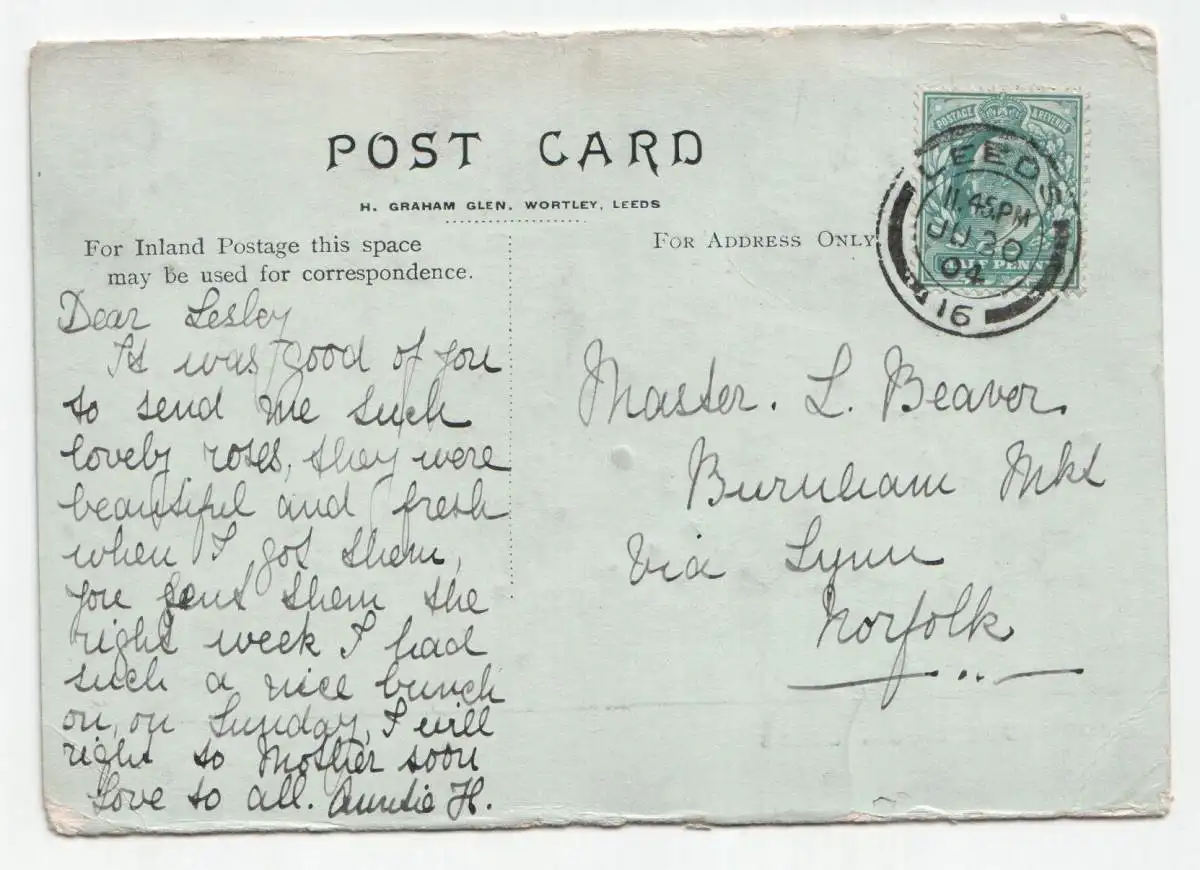 POST CARD
H. GRAHAM GLEN, WORTLEY, LEEDS
For Inland Postage this space
may be used for correspondence.
For Address Only
POSTAGE & REVENUE
HALF PENNY
LEEDS
11.45PM
JU 20
04
16
Dear Lesley
It was good of you
to send me such
lovely roses, they were
beautiful and fresh
when I got them,
you sent them the
right week I had
such a nice bunch
on, on Sunday, I will
right to Mother soon
Love to all. Auntie H.
Master. L. Beaver.
Burnham Mkt
Via Lynn
Norfolk